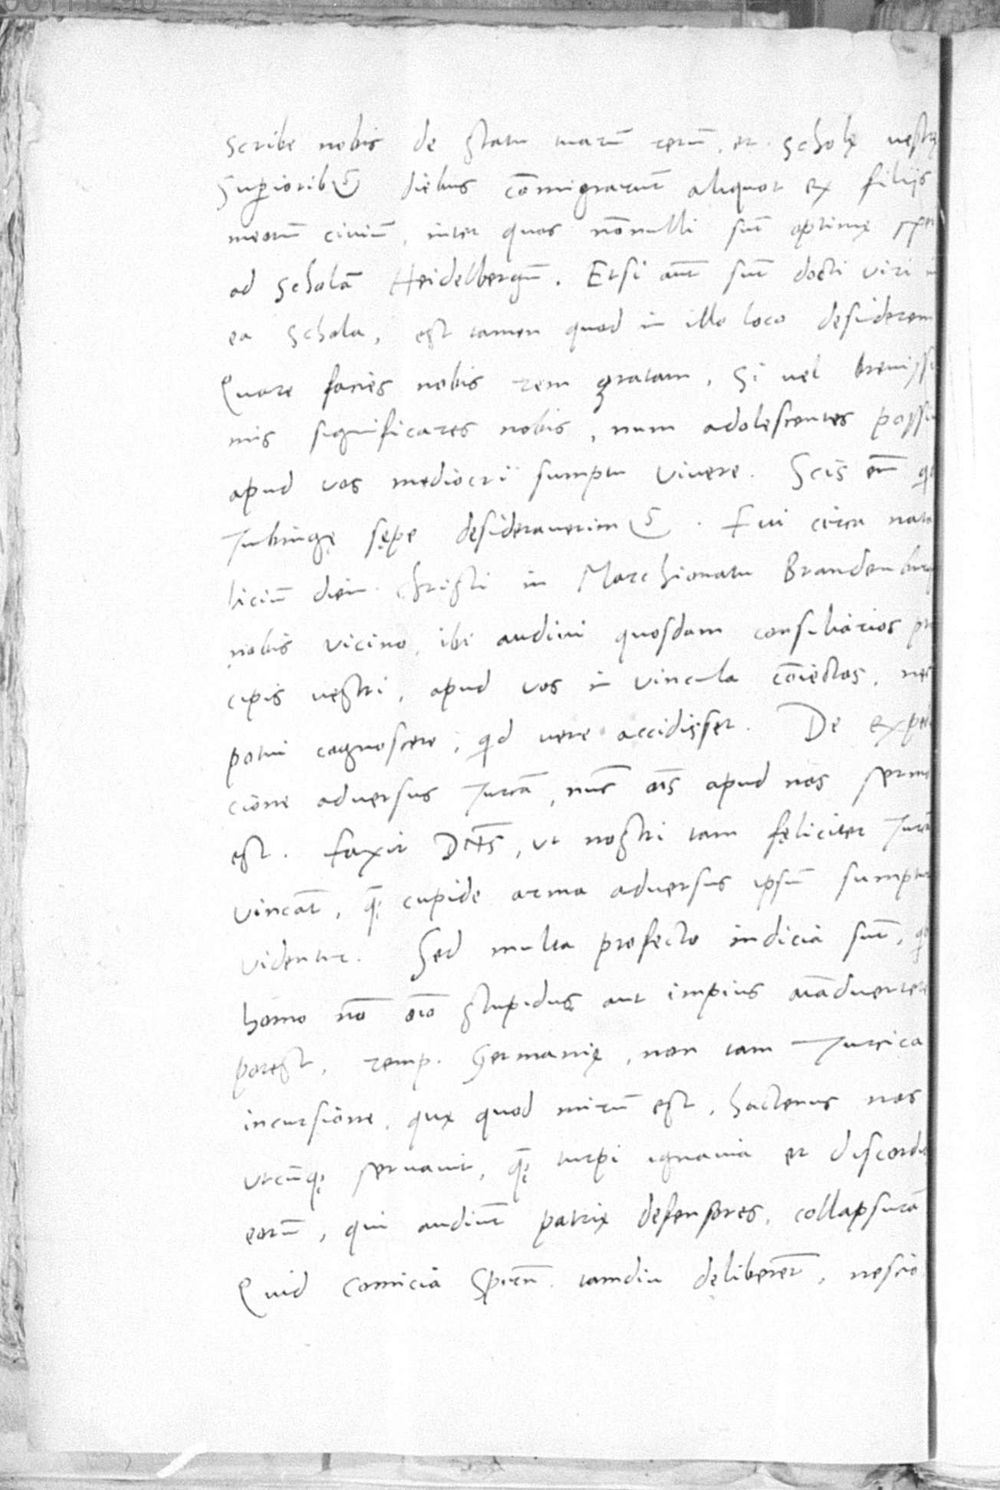 Scribe nobis de statu tuarū rerū, et scholę vestrę
Suꝑioribꝰ diebus cōmigrarūt aliquot ex filijs
meorū civiū, inter quos nōnulli sūt optimę spei
ad scholā Heidelbergēn. Etsi aūt sūt docti viri in
ea schola, est tamen quod in illo loco desiderem
Quare facies nobis rem gratam, Si vel brevissi
mis significares nobis, num adolescentes possin
apud vos mediocri sumptu vivere. Scis em̄ qd
Tubingę sępe desideraverimꝰ. Fui circa nata
liciū diem Christi in Marchionatu Brandenburg
nobis vicino, ibi audivi quosdam consiliarios prin
cipis vestri, apud vos in vincula cōiectos, nec
potui cognoscere, qd vere accidisset. De expedi
cione adversus Turcā, nūc oīs apud nos sermo
est. Faxit Deus, ut nostri tam fęliciter Turcā
vincāt, quā cupide arma adversus ipsū sumptur
videntur. Sed multa profecto indicia sūt, quę
homo nō oīo stupidus aut impius aīadvertere
potest, remp. Germanię, non tam Turcica
incursione, quę quod mirū est, hactenus nos
utcūqꝫ servavit, quā turpi ignavia et discordia
eorū, qui audiūt patrię defensores, collapsurā
Quid comicia Spirēn. tamdiu dęliberēt, nescio